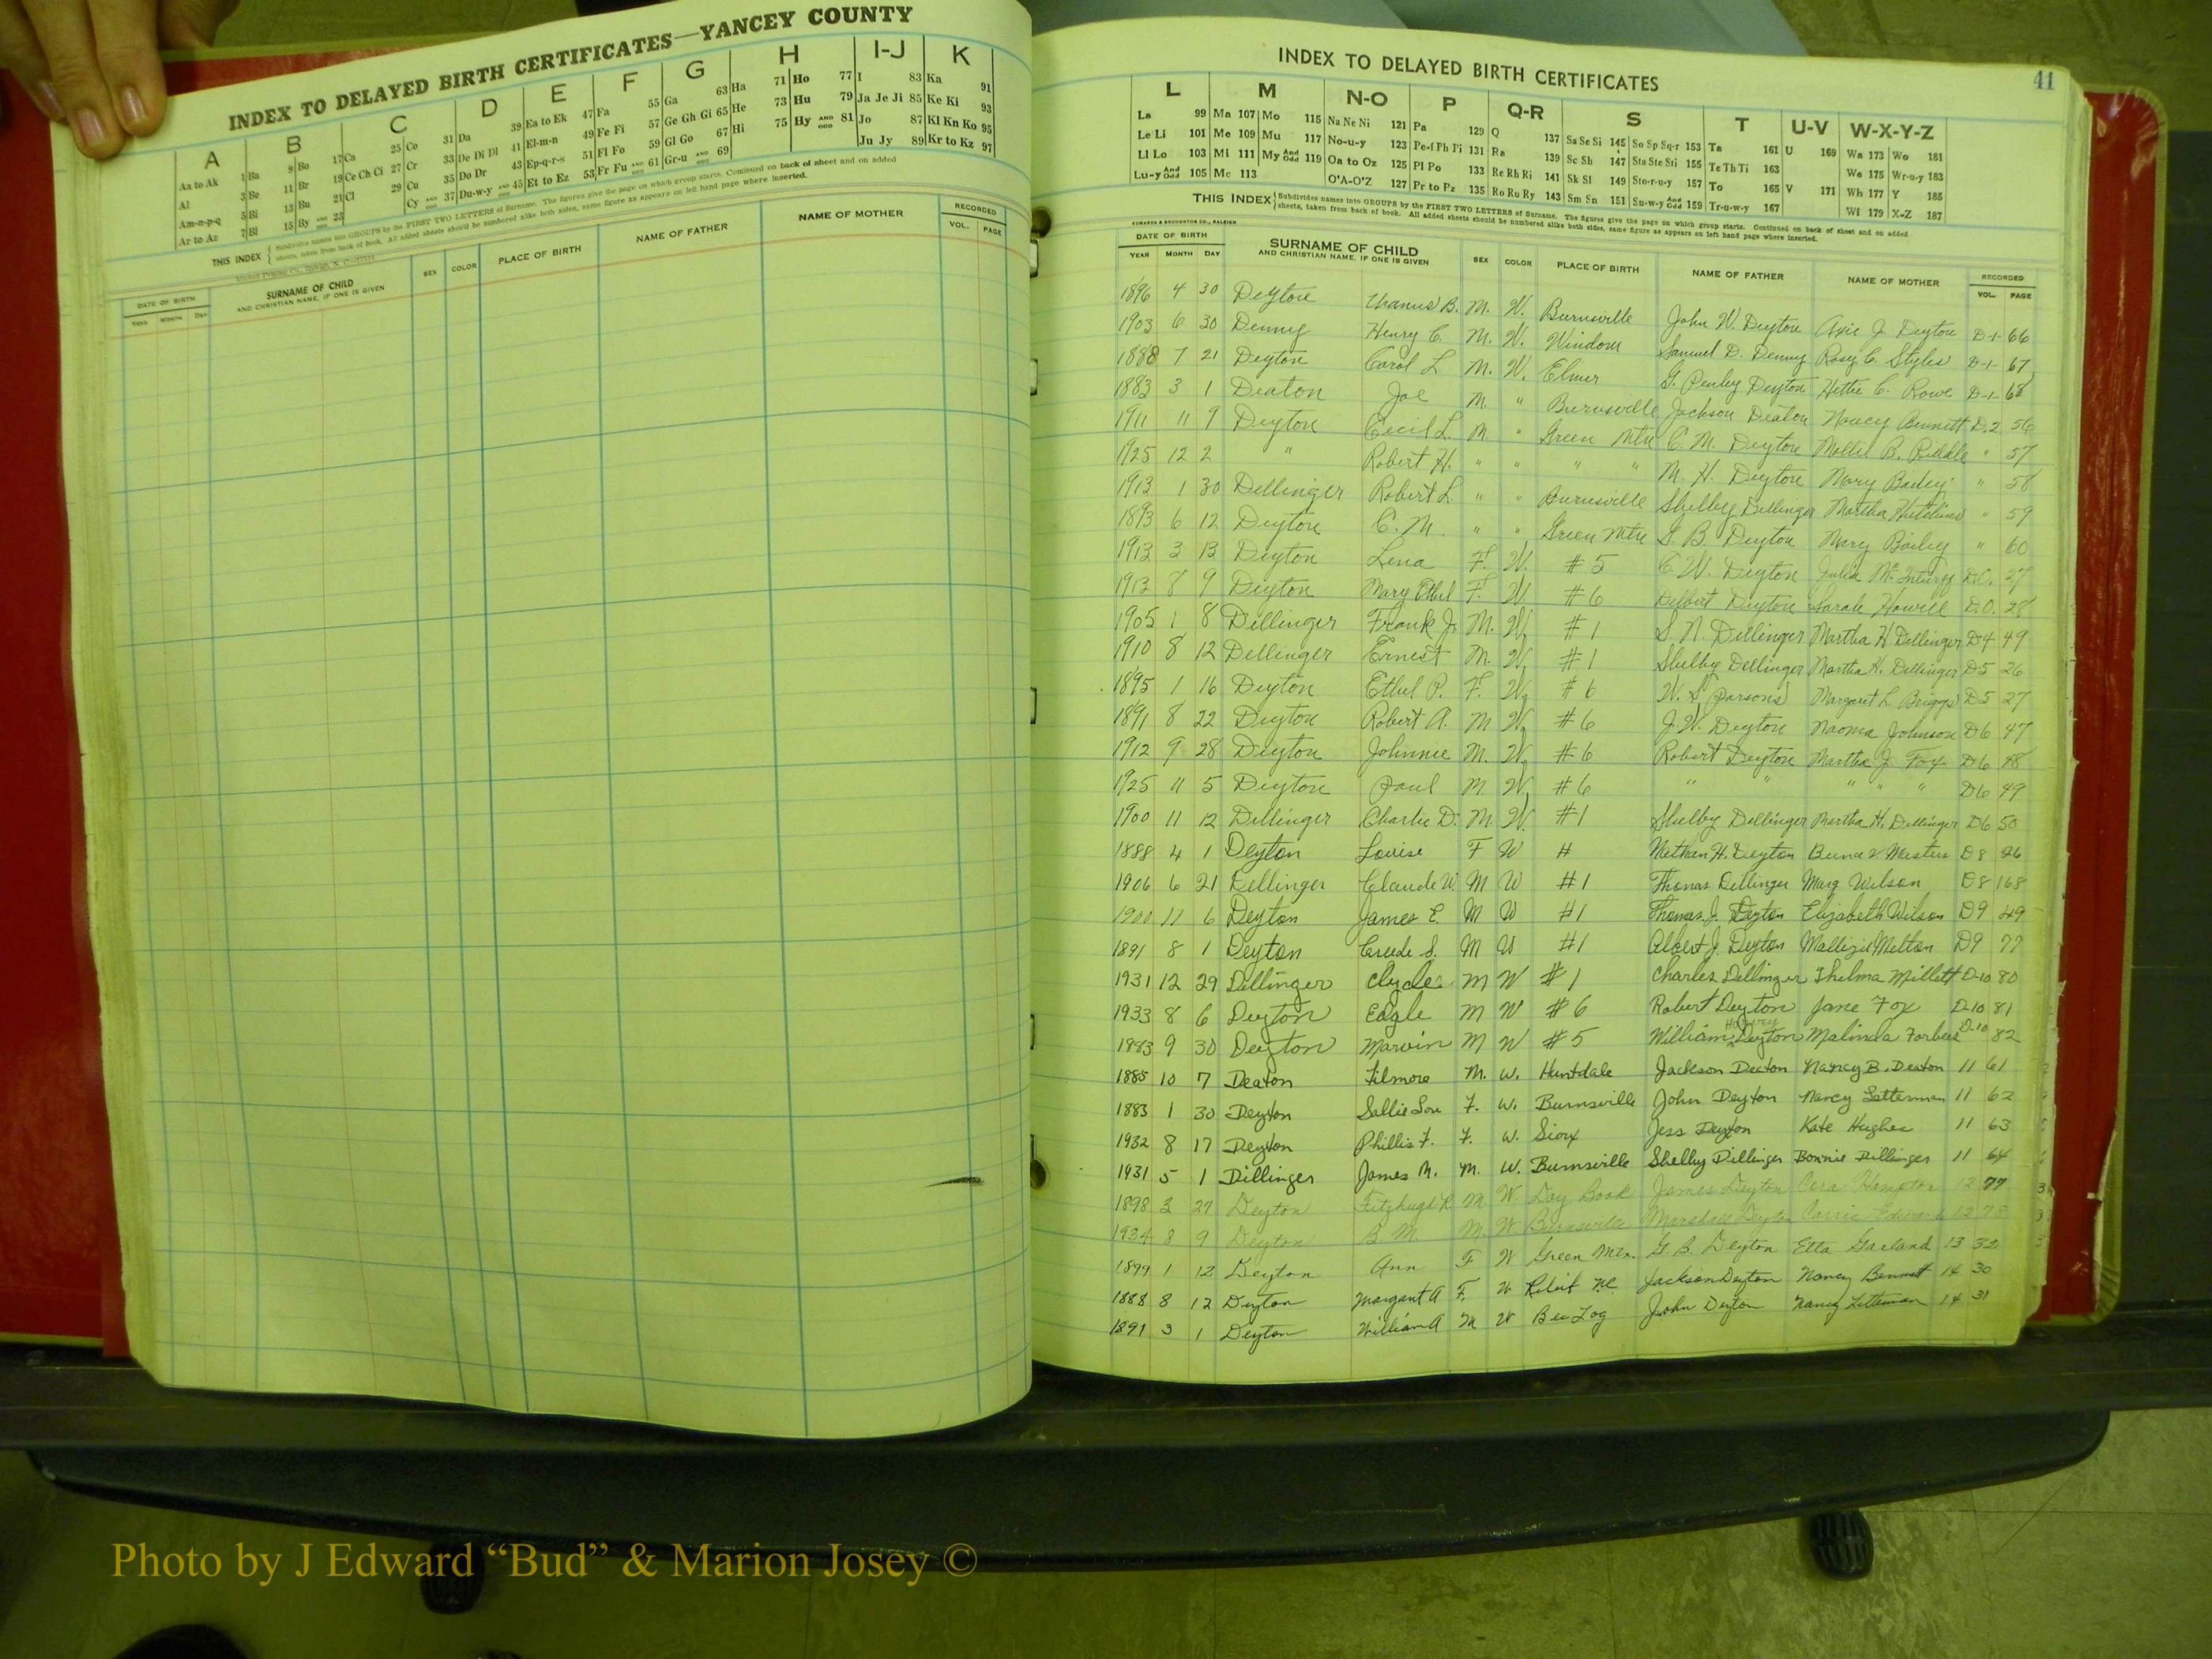 INDEX TO DELAYED BIRTH CERTIFICATES—YANCEY COUNTY
A B C D E F G H I-J K
Aa to Ak 1 Ba 9 Bo 17 Ca 25 Co 31 Da 39 Ea to Ek 47 Fa 55 Ga 63 Ha 71 Ho 77 I 83 Ka 91
Al 3 Be 11 Br 19 Ce Ch Ci 27 Cr 33 De Di Dl 41 El-m-n 49 Fe Fi 57 Ge Gh Gi 65 He 73 Hu 79 Ja Je Ji 85 Ke Ki 93
Am-n-p-q 5 Bi 13 Bu 21 Cl 29 Cu 35 Do Dr 43 Ep-q-r-s 51 Fl Fo 59 Gl Go 67 Hi 75 Hy AND ODD 81 Jo 87 Kl Kn Ko 95
Ar to Az 7 Bl 15 By AND ODD 23 Cy AND ODD 37 Du-w-y AND ODD 45 Et to Ez 53 Fr Fu AND ODD 61 Gr-u AND ODD 69 Ju Jy 89 Kr to Kz 97
THIS INDEX { Subdivides names into GROUPS by the FIRST TWO LETTERS of Surname. The figures give the page on which group starts. Continued on back of sheet and on added
sheets, taken from back of book. All added sheets should be numbered alike both sides, same figure as appears on left hand page where inserted.
DATE OF BIRTH SURNAME OF CHILD SEX COLOR PLACE OF BIRTH NAME OF FATHER NAME OF MOTHER RECORDED
YEAR MONTH DAY AND CHRISTIAN NAME, IF ONE IS GIVEN VOL. PAGE
INDEX TO DELAYED BIRTH CERTIFICATES 41
L M N-O P Q-R S T U-V W-X-Y-Z
La 99 Ma 107 Mo 115 Na Ne Ni 121 Pa 129 Q 137 Sa Se Si 145 So Sp Sq-r 153 Ta 161 U 169 Wa 173 Wo 181
Le Li 101 Me 109 Mu 117 No-u-y 123 Pe-f Ph Pi 131 Ra 139 Sc Sh 147 Sta Ste Sti 155 Te Th Ti 163 We 175 Wr-u-y 183
Ll Lo 103 Mi 111 My And Odd 119 Oa to Oz 125 Pl Po 133 Re Rh Ri 141 Sk Sl 149 Sto-r-u-y 157 To 165 V 171 Wh 177 Y 185
Lu-y And Odd 105 Mc 113 O'A-O'Z 127 Pr to Pz 135 Ro Ru Ry 143 Sm Sn 151 Su-w-y And Odd 159 Tr-u-w-y 167 Wi 179 X-Z 187
THIS INDEX { Subdivides names into GROUPS by the FIRST TWO LETTERS of Surname. The figures give the page on which group starts. Continued on back of sheet and on added
sheets, taken from back of book. All added sheets should be numbered alike both sides, same figure as appears on left hand page where inserted.
EDWARDS & BROUGHTON CO., RALEIGH
DATE OF BIRTH SURNAME OF CHILD SEX COLOR PLACE OF BIRTH NAME OF FATHER NAME OF MOTHER RECORDED
YEAR MONTH DAY AND CHRISTIAN NAME, IF ONE IS GIVEN VOL. PAGE
1896 4 30 Deyton Uranus B. M. W. Burnsville John W. Deyton Axie J. Deyton D-1- 66
1903 6 30 Denny Henry C. M. W. Windom Samuel D. Denny Rosey C. Styles D-1- 67
1888 7 21 Deyton Carol L M. W. Elmer G. Penley Deyton Hettie C. Rowe D-1- 68
1883 3 1 Deaton Joe M. " Burnsville Jackson Deaton Nancy Bennett D.2 56
1911 11 9 Deyton Cecil L. M. " Green Mtn C. M. Deyton Mollie B. Riddle " 57
1925 12 2 " Robert H. " " " " M. H. Deyton Mary Bailey " 58
1913 1 30 Dellinger Robert L " " Burnsville Shelby Dellinger Martha Hutchins " 59
1893 6 12 Deyton C. M. " " Green Mtn S. B. Deyton Mary Bailey " 60
1913 3 13 Deyton Lena F. W. #5 C. W. Deyton Julia McInturff D.O. 27
1913 8 9 Deyton Mary Ethel F. W. #6 Delbert Deyton Sarah Howell D.O. 28
1905 1 8 Dillinger Frank J. M. W. #1 S. N. Dellinger Martha H Dellinger D4 49
1910 8 12 Dellinger Ernest M. W. #1 Shelby Dellinger Martha H. Dellinger D5 26
1895 1 16 Deyton Ethel P. F. W. #6 W. S. Parsons Margaret L Briggs D5 27
1891 8 22 Deyton Robert A. M W. #6 J. W. Deyton Naoma Johnson D6 47
1912 9 28 Deyton Johnnie M. W. #6 Robert Deyton Martha J. Fox D6 48
1925 11 5 Deyton Paul M W. #6 " " " " " D6 49
1900 11 12 Dellinger Charlie D. M. W. #1 Shelby Dellinger Martha H. Dellinger D6 50
1888 4 1 Deyton Louise F W # Nathan H. Deyton D8 26
1906 6 21 Dellinger Claude W. M W #1 Thomas Dellinger Marg Wilson D8 168
1900 11 6 Deyton James E. M W #1 Thomas J. Deyton Elizabeth Wilson D9 49
1891 8 1 Deyton S. M W #1 Albert J. Deyton Melton D9 77
1931 12 29 Dellinger Clyde M W #1 Charles Dellinger Thelma Millett D-10 80
1933 8 6 Deyton Eagle M W #6 Robert Deyton Jane Fox D-10 81
1883 9 30 Deyton Marvin M W #5 William Harvey Deyton Malinda Forbes D-10 82
1885 10 7 Deaton Filmore M. W. Huntdale Jackson Deaton Nancy B. Deaton 11 61
1883 1 30 Deyton Sallie Lou F. W. Burnsville John Deyton Nancy Letterman 11 62
1932 8 17 Deyton Phillis F. F. W. Sioux Jess Deyton Kate Hughes 11 63
1931 5 1 Dillinger James M. M. W. Burnsville Shelby Dillinger Bonnie Dillinger 11 64
1898 3 27 Deyton Fitzhugh R M. W. Day Book James Deyton Cora Hampton 12 77
1934 8 9 Deyton B. M. M. W. Burnsville Marshall Deyton Carrie Edwards 12
1899 1 12 Deyton Ann F W Green Mtn. G. B. Deyton Etta Garland 13 32
1888 8 12 Deyton Margaret A F. W N.C. Jackson Deyton Nancy Bennett 14 30
1891 3 1 Deyton William A M W Bee Log John Deyton Nancy Letterman 14 31
Photo by J Edward “Bud” & Marion Josey ©